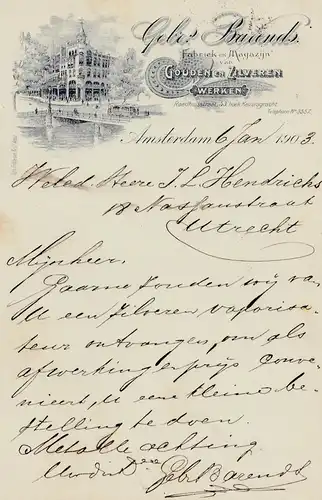 Gebrs Barends.
Fabriek en Magazijn
van
GOUDEN EN ZILVEREN
WERKEN
Raadhuisstraat, hoek Keizersgracht
Telephoon No
Amsterdam 6 Jan 1903.
Weled. Heere J. L. Hendrichs
18 Nassaustraat
Utrecht
Mijnheer.
Gaarne zouden wij van
U een zilveren vaporisa-
teur ontvangen, om als
afwerking en prijs conve-
nieert, U een kleine be-
stelling te doen.
Met alle achting
Uw dw
Gebr Barends